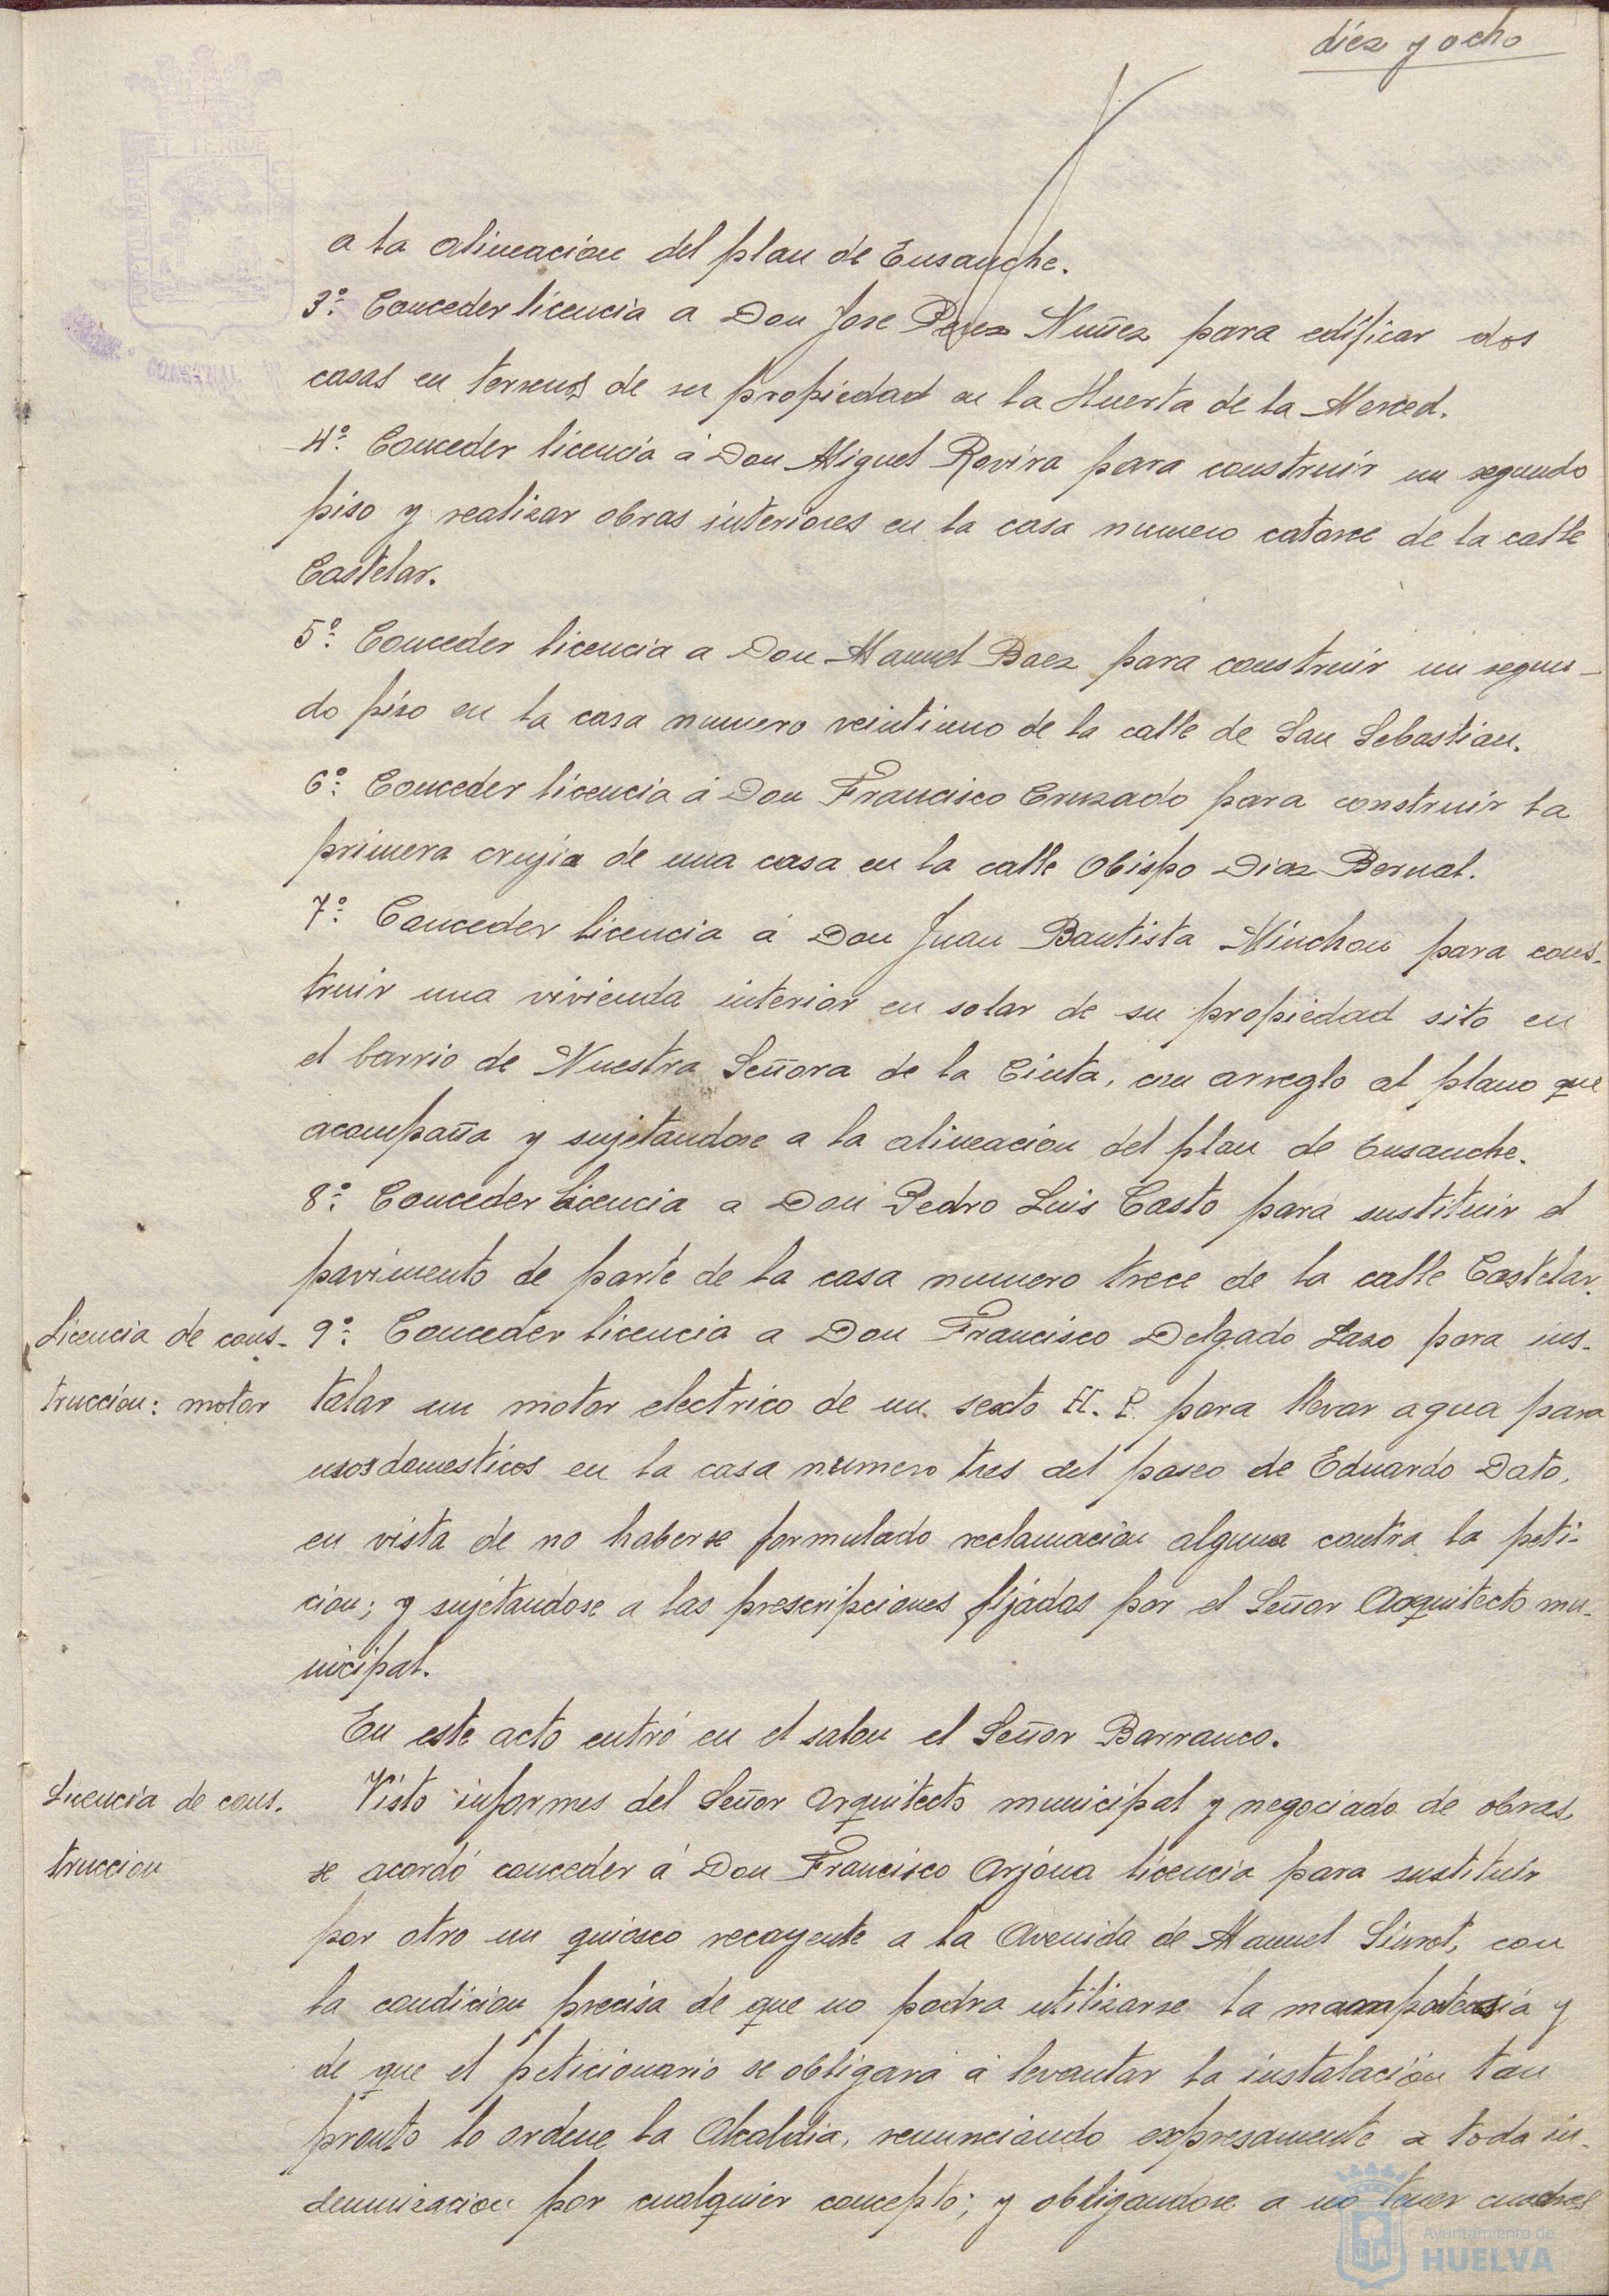 diez y ocho
a la alineacion del plan de Ensanche.
3º: Conceder licencia a Don Jose Perez Nuñez para edificar dos
casas en terrenos de su propiedad en la Huerta de la Merced.
4º: Conceder licencia á Don Miguel Rovira para construir un segundo
piso y realizar obras interiores en la casa numero catorce de la calle
Castelar.
5º: Conceder licencia a Don Manuel Baez para construir un segun-
do piso en la casa numero veintiuno de la calle de San Sebastian.
6º: Conceder licencia á Don Francisco Cruzado para construir la
primera crujia de una casa en la calle Obispo Diaz Bernal.
7º: Conceder licencia á Don Juan Bautista Minchon para cons-
truir una vivienda interior en solar de su propiedad sito en
el barrio de Nuestra Señora de la Cinta, con arreglo al plano que
acompaña y sujetandose a la alineación del plan de Ensanche.
8º: Conceder licencia a Don Pedro Luis Casto para sustituir el
pavimento de parte de la casa numero trece de la calle Castelar.
Licencia de cons-
trucción: motor
9º: Conceder licencia a Don Francisco Delgado Lazo para ins-
talar un motor electrico de un sexto H. P. para llevar agua para
usos domesticos en la casa numero tres del paseo de Eduardo Dato,
en vista de no haberse formulado reclamación alguna contra la peti-
cion; y sujetandose a las prescripciones fijadas por el Señor Arquitecto mu-
nicipal.
En este acto entró en el salon el Señor Barranco.
Licencia de cons-
truccion
Visto informes del Señor Arquitecto municipal y negociado de obras,
se acordó conceder á Don Francisco Arjóna licencia para sustituir
por otro un quiosco recayente a la Avenida de Manuel Siurot, con
la condicion precisa de que no podra utilizarse la mamposteria y
de que el peticionario se obligará á levantar la instalación tan
pronto lo ordene la Alcaldia, renunciando expresamente a toda in-
demnizacion por cualquier concepto; y obligandose a no tener
Ayuntamiento de
HUELVA